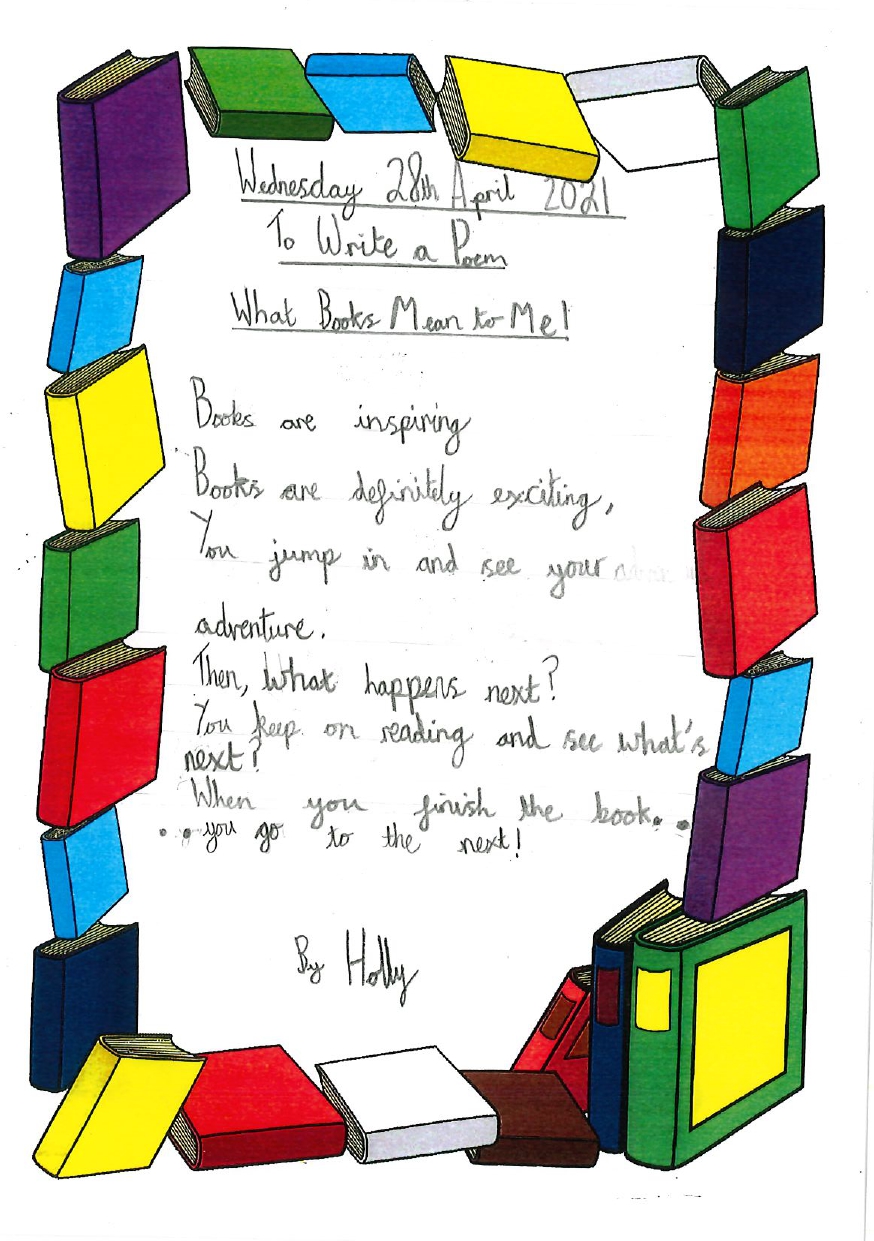 Wednesday 28th April 2021
To Write a Poem
What Books Mean to Me!
Books are inspiring
Books are definitely exciting,
You jump in and see your
adventure.
Then, what happens next?
You keep on reading and see what's
next?
When you finish the book..
..you go to the next!
By Holly